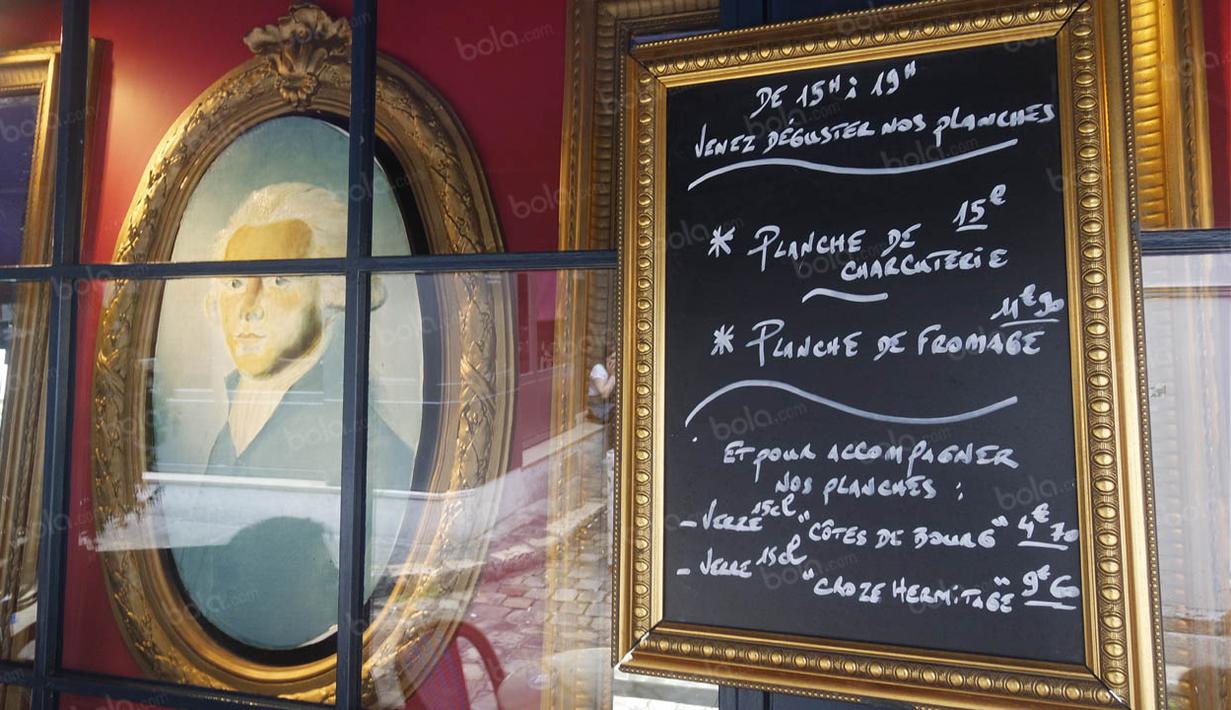 DE 15H à 19H
VENEZ DÉGUSTER NOS PLANCHES
15€
* PLANCHE DE
CHARCUTERIE
€90
* PLANCHE DE FROMAGE
ET POUR ACCOMPAGNER
NOS PLANCHES :
- VERRE 15cl "CÔTES DE BOURG" 4€70
- VERRE 15cl
"CROZE HERMITAGE" 9€60
bola.com